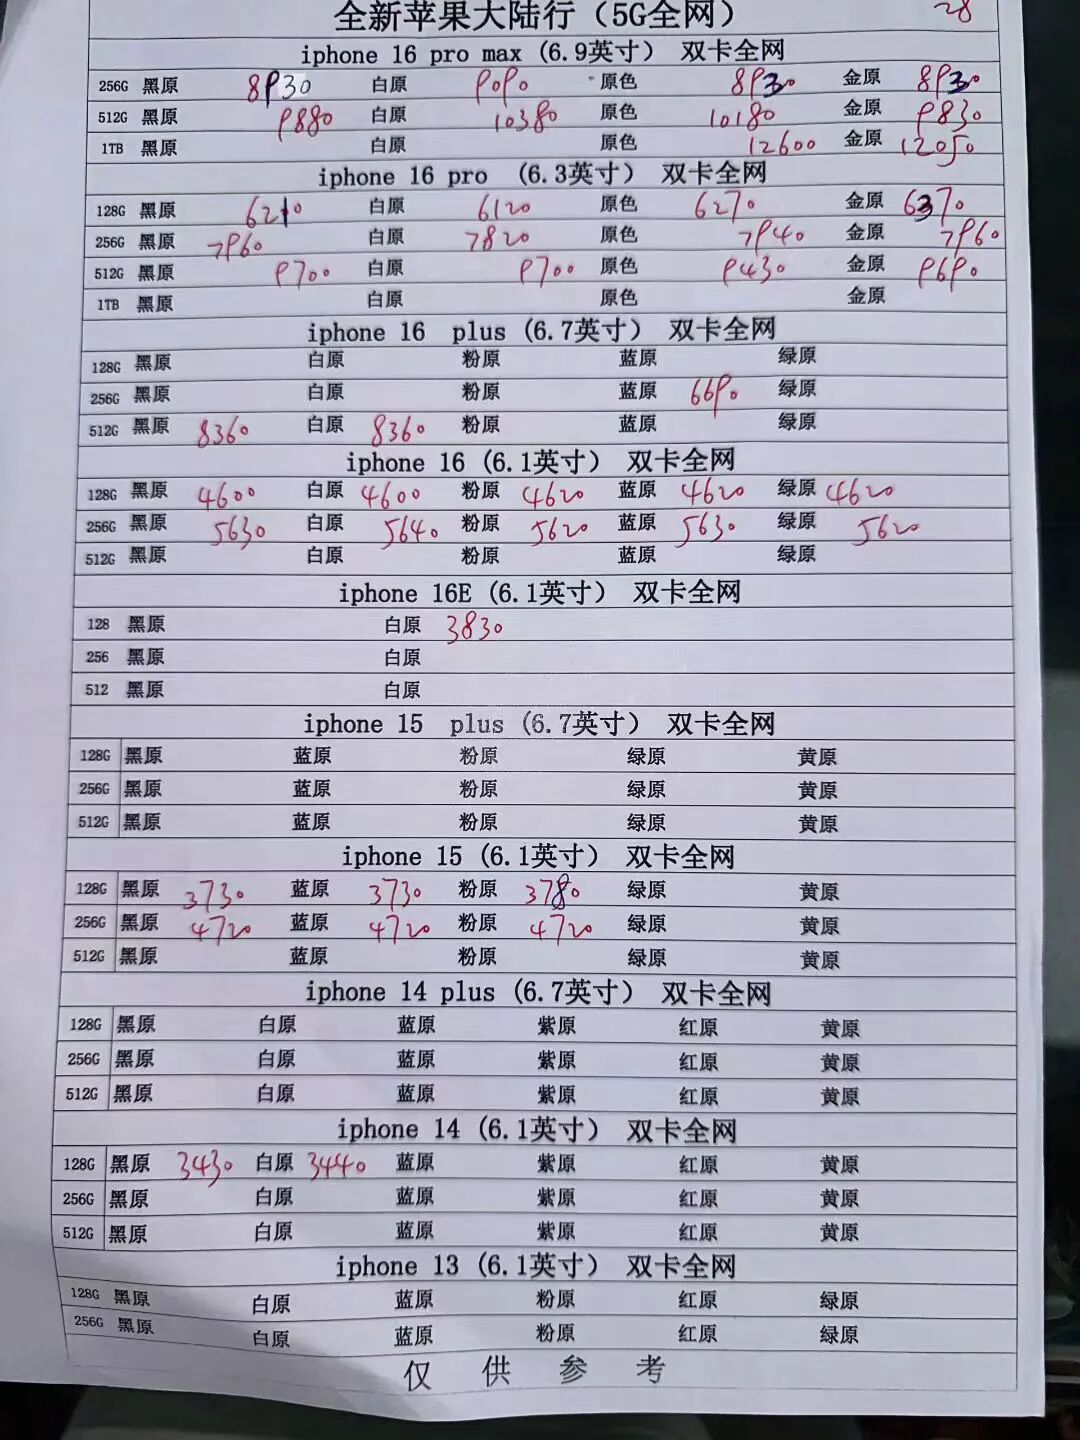 全新苹果大陆行（5G全网） 28
iphone 16 pro max (6.9英寸） 双卡全网
256G 黑原 8930 白原 9090 原色 8930 金原 8930
512G 黑原 9880 白原 10380 原色 10180 金原 9830
1TB 黑原 白原 原色 12600 金原 12050
iphone 16 pro （6.3英寸） 双卡全网
128G 黑原 6210 白原 6120 原色 6270 金原 6370
256G 黑原 7960 白原 7820 原色 7940 金原 7960
512G 黑原 9700 白原 9700 原色 9430 金原 9690
1TB 黑原 白原 原色 金原
iphone 16 plus (6.7英寸） 双卡全网
128G 黑原 白原 粉原 蓝原 绿原
256G 黑原 白原 粉原 蓝原 6690 绿原
512G 黑原 8360 白原 8360 粉原 蓝原 绿原
iphone 16 (6.1英寸） 双卡全网
128G 黑原 4600 白原 4600 粉原 4620 蓝原 4620 绿原 4620
256G 黑原 5630 白原 5640 粉原 5620 蓝原 5630 绿原 5620
512G 黑原 白原 粉原 蓝原 绿原
iphone 16E (6.1英寸） 双卡全网
128 黑原 白原 3830
256 黑原 白原
512 黑原 白原
iphone 15 plus (6.7英寸） 双卡全网
128G 黑原 蓝原 粉原 绿原 黄原
256G 黑原 蓝原 粉原 绿原 黄原
512G 黑原 蓝原 粉原 绿原 黄原
iphone 15 (6.1英寸） 双卡全网
128G 黑原 3730 蓝原 3730 粉原 3780 绿原 黄原
256G 黑原 4720 蓝原 4720 粉原 4720 绿原 黄原
512G 黑原 蓝原 粉原 绿原 黄原
iphone 14 plus (6.7英寸） 双卡全网
128G 黑原 白原 蓝原 紫原 红原 黄原
256G 黑原 白原 蓝原 紫原 红原 黄原
512G 黑原 白原 蓝原 紫原 红原 黄原
iphone 14 (6.1英寸） 双卡全网
128G 黑原 3430 白原 3440 蓝原 紫原 红原 黄原
256G 黑原 白原 蓝原 紫原 红原 黄原
512G 黑原 白原 蓝原 紫原 红原 黄原
iphone 13 (6.1英寸） 双卡全网
128G 黑原 白原 蓝原 粉原 红原 绿原
256G 黑原 白原 蓝原 粉原 红原 绿原
仅 供 参 考